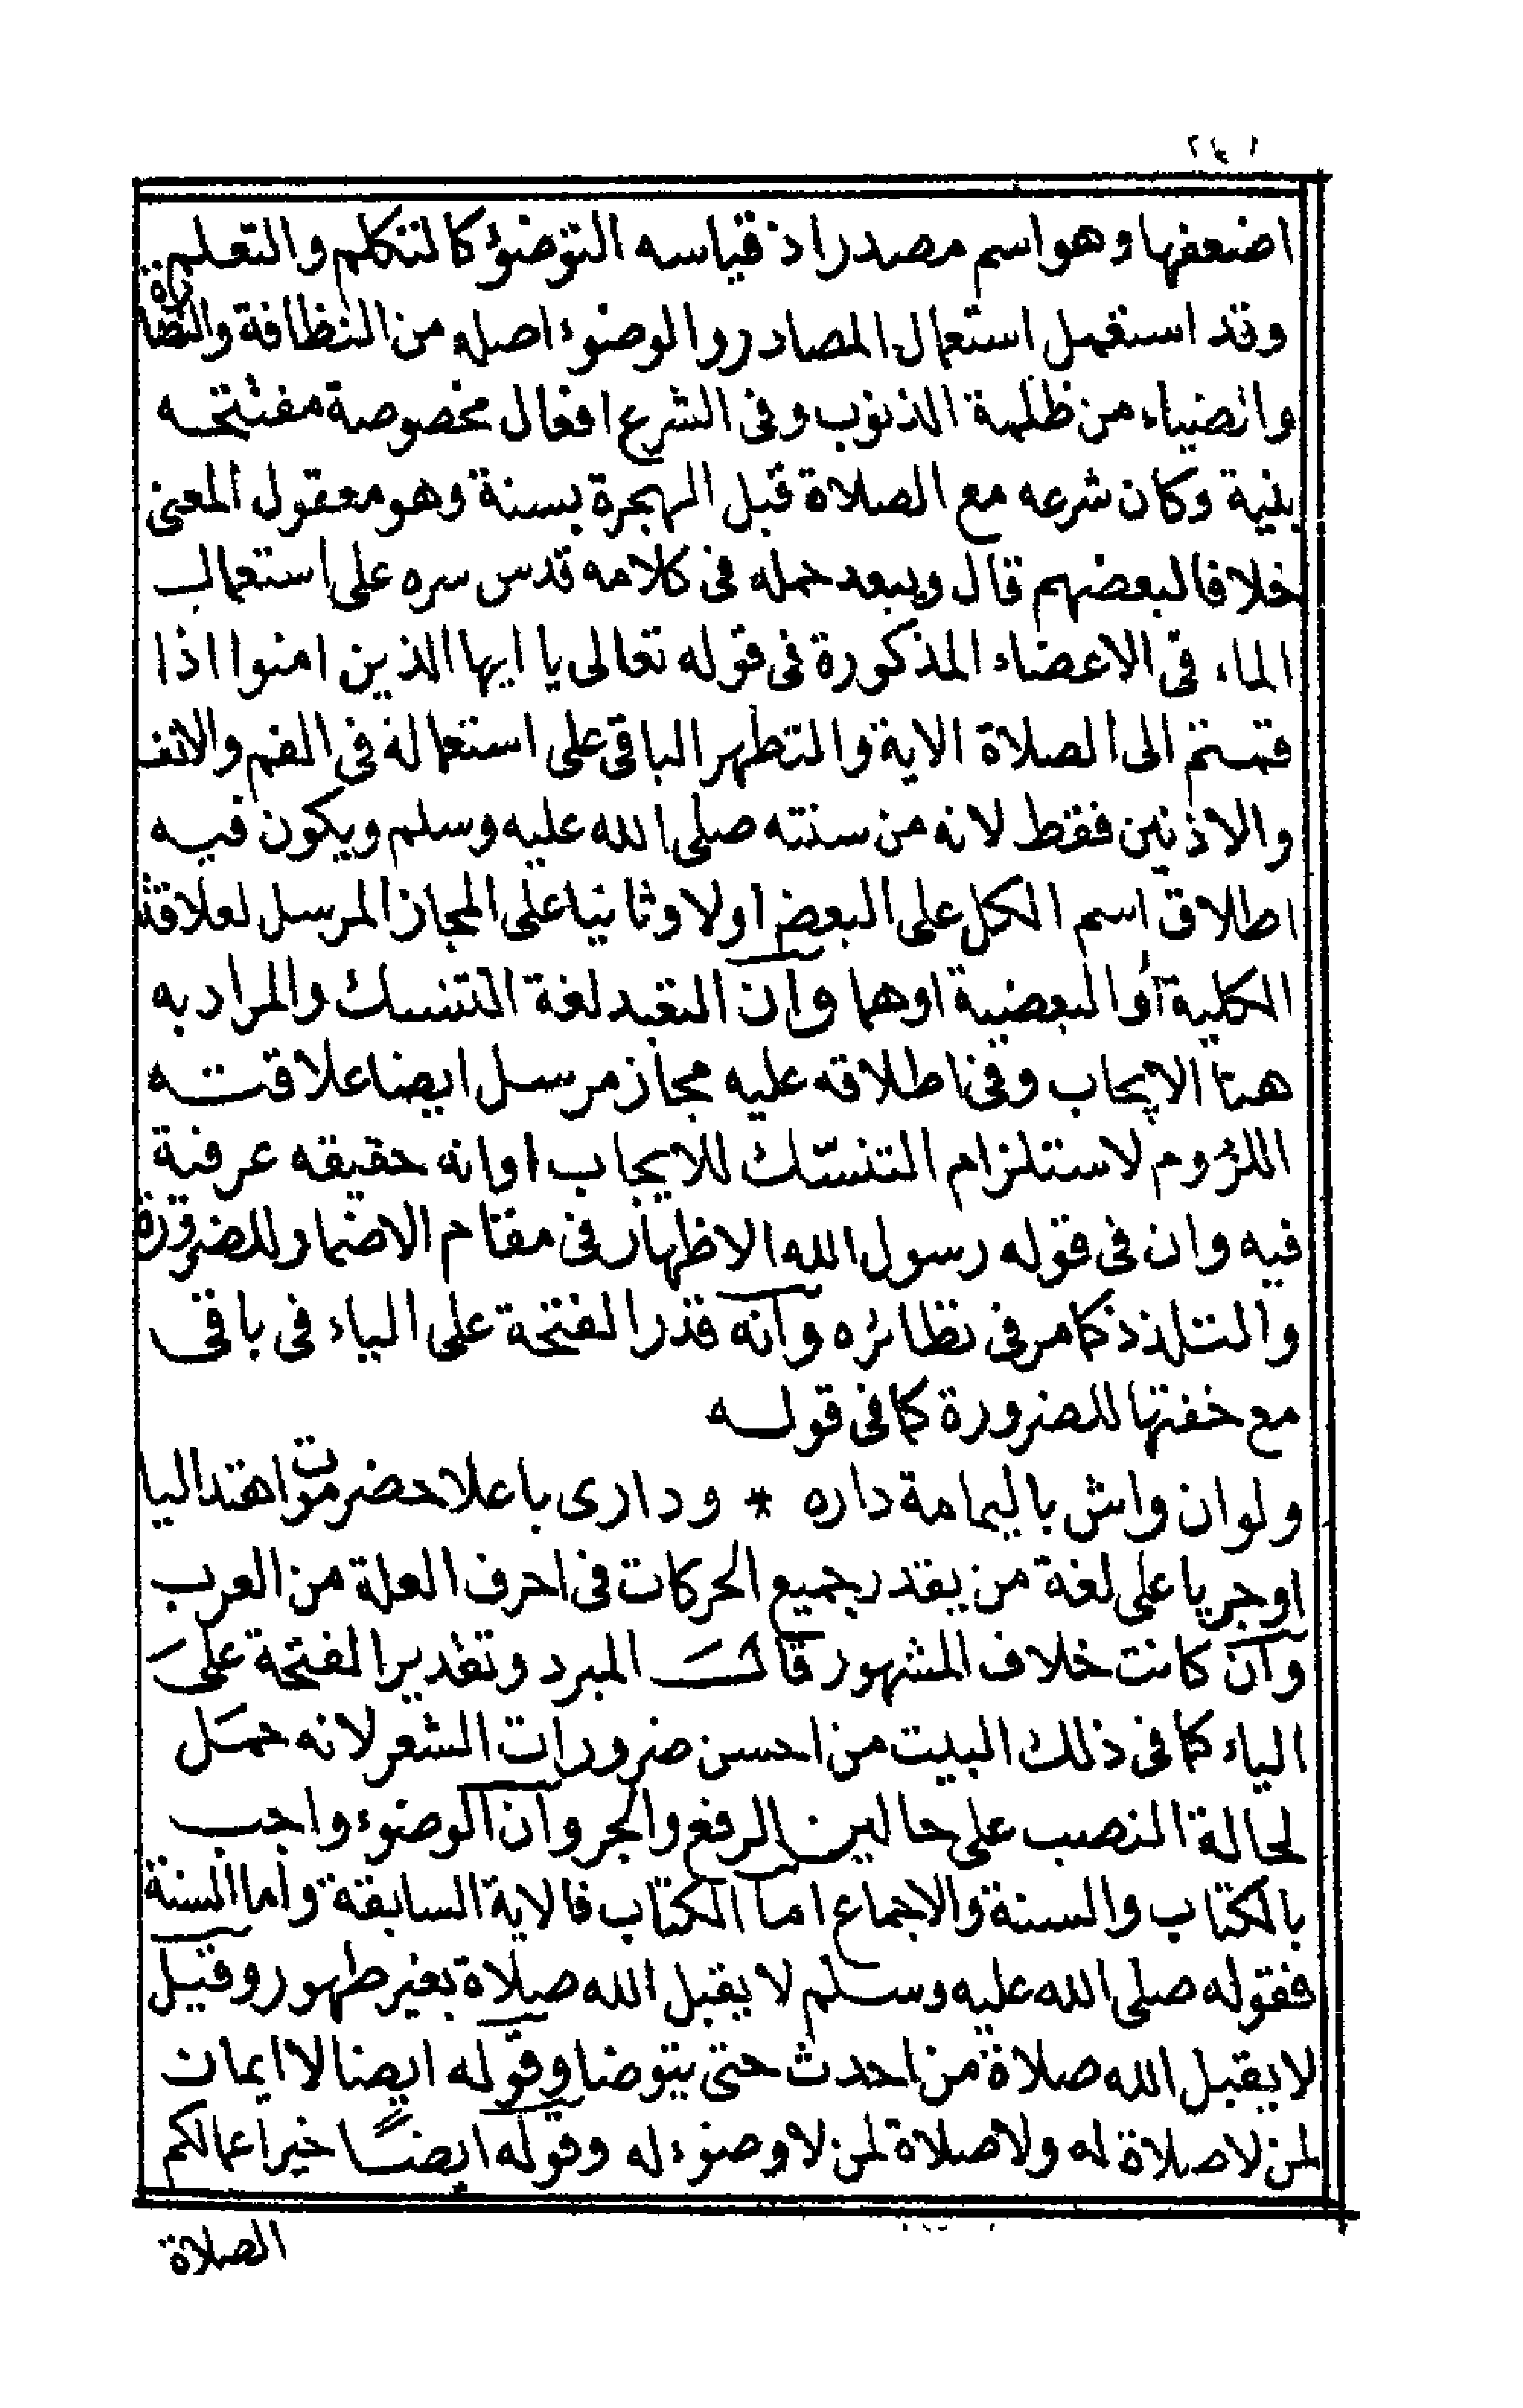 ٢٤١
اضعفها وهو اسم مصدر اذ قياسه التوضؤ كالتكلم والتعلم
وقد استعمل استعمال المصادر والوضوء اصله من النظافة والنضارة
والضياء من ظلمة الذنوب وفى الشرع افعال مخصوصة مفتتحه
بنية وكان شرعه مع الصلاة قبل الهجرة بسنة وهو معقول المعنى
خلافا لبعضهم قال ويبعد حمله فى كلامه قدس سره على استعمال
الماء فى الاعضاء المذكورة فى قوله تعالى يا ايها الذين امنوا اذا
قمتم الى الصلاة الاية والتطهر الباقى على استعماله فى الفم والانف
والاذنين فقط لانه من سنته صلى الله عليه وسلم ويكون فيه
اطلاق اسم الكل على البعض اولا وثانيا على المجاز المرسل لعلاقة
الكلية أو البعضية اوهما وان التعبد لغة التنسك والمراد به
هنا الايجاب وفى اطلاقه عليه مجاز مرسل ايضا علاقته
اللزوم لاستلزام التنسّك للايجاب او انه حقيقه عرفية
فيه وان فى قوله رسول الله الاظهار فى مقام الاضمار للضرورة
والتلذذ كما مر فى نظائره وانه قدر الفتحة على الياء فى باقى
مع خفتها للضرورة كما فى قوله
ولو ان واش باليمامة داره * ودارى باعلا حضرموت اهتدا ليا
او جريا على لغة من يقدر جميع الحركات فى احرف العلة من العرب
وان كانت خلاف المشهور قال المبرد وتقدير الفتحة على
الياء كما فى ذلك البيت من احسن ضرورات الشعر لانه حمل
لحالة النصب على حالين الرفع والجر وان الوضوء واجب
بالكتاب والسنة والاجماع اما الكتاب فالاية السابقة واما السنة
فقوله صلى الله عليه وسلم لا يقبل الله صلاة بغير طهور وقيل
لا يقبل الله صلاة من احدث حتى يتوضا وقوله ايضا لا ايمان
لمن لا صلاة له ولا صلاة لمن لا وضوء له وقوله ايضًا خير اعمالكم
الصلاة